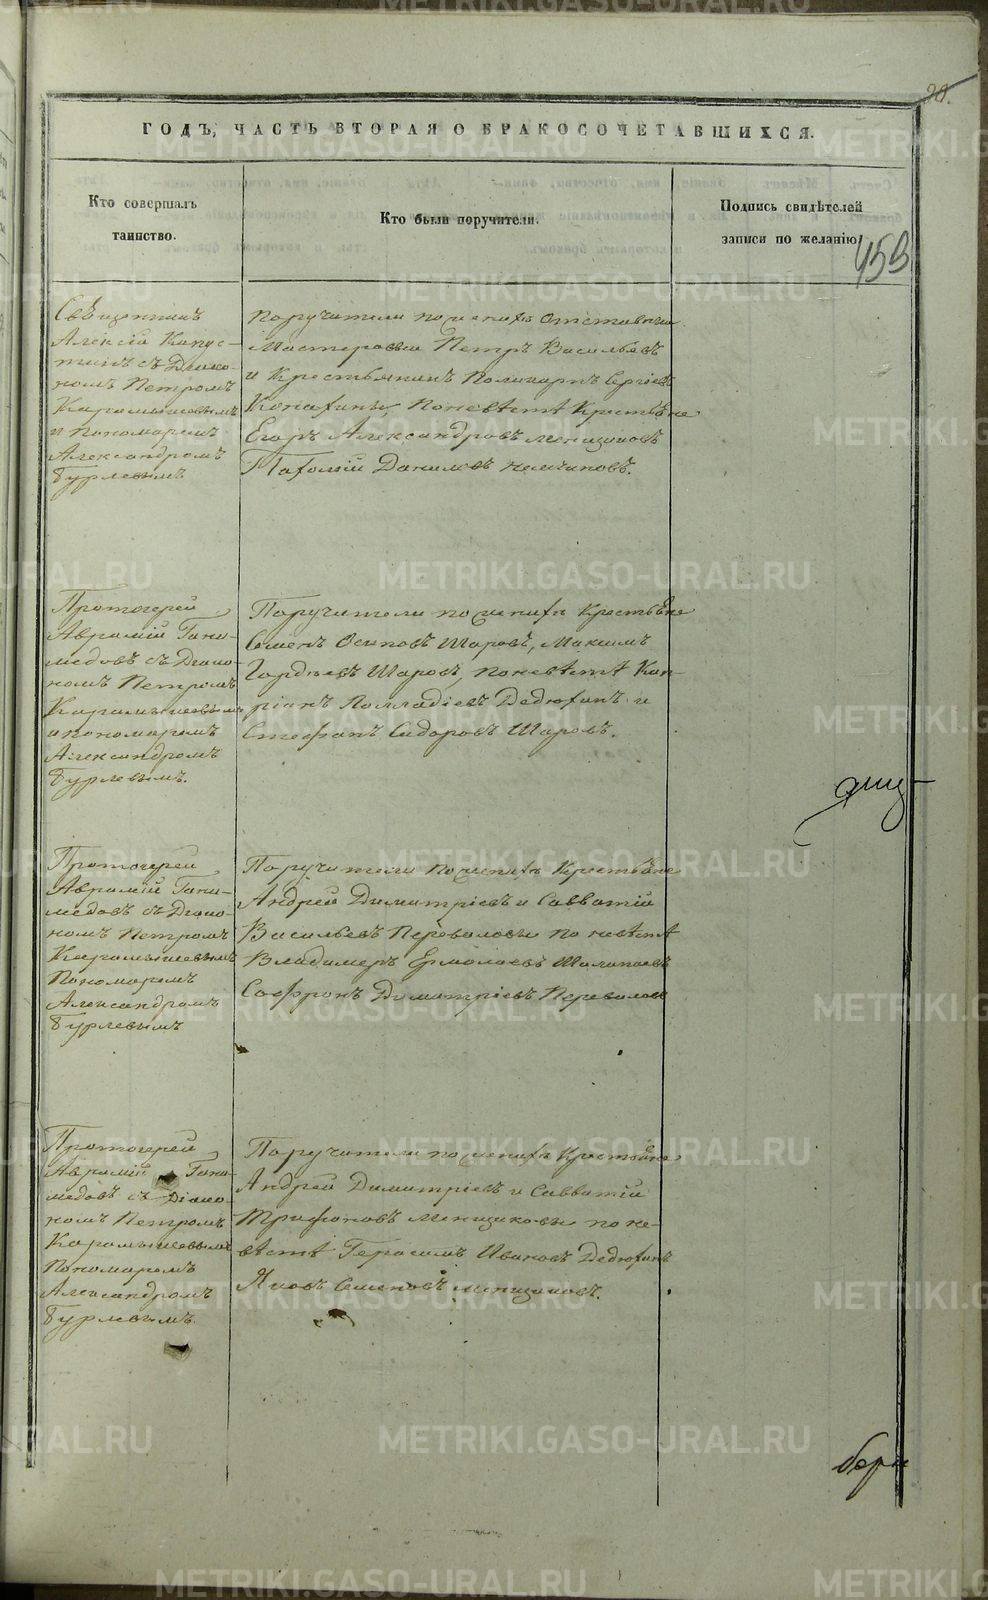 90.
ГОДЪ, ЧАСТЬ ВТОРАЯ О БРАКОСОЧЕТАВШИХСЯ.
Кто совершалъ
таинство.
Кто были поручители.
Подпись свидѣтелей
записи по желанію
Священникъ
Алексій Капус-
тинъ съ Діако-
номъ Петромъ
Карамышевымъ
и пономаремъ
Александромъ
Бурлевымъ
Поручители по женихѣ Отставный
Мастеровый Петръ Васильевъ
и Крестьянинъ Поликарпъ Сергіевъ
по невѣстѣ Крестьяне
Егоръ Александровъ Менщиковъ
Даниловъ
Протоіерей
Аврамій Гани-
медовъ съ Діако-
номъ Петромъ
Карамышевымъ
и пономаремъ
Александромъ
Бурлевымъ.
Поручители по женихѣ Крестьяне
Семенъ Осиповъ Шаровъ, Максимъ
Гордѣевъ Шаровъ, по невѣстѣ Кип-
ріанъ Палладіевъ Дедюхинъ и
Стефанъ Сидоровъ Шаровъ.
Протоіерей
Аврамій Гани-
медовъ съ Діако-
номъ Петромъ
Карамышевымъ
Пономаремъ
Александромъ
Бурлевымъ
Поручители по женихѣ Крестьяне
Андрей Димитріевъ и Савватій
Васильевъ Переваловы по невѣстѣ
Владимеръ Ермолаевъ
Софронъ Димитріевъ Переваловъ
Протоіерей
Аврамій Гани-
медовъ съ Діако-
номъ Петромъ
Карамышевымъ
Пономаремъ
Александромъ
Бурлевымъ.
Поручители по женихѣ Крестьяне
Андрей Димитріевъ и Савватій
Трифоновъ Менщиковы по не-
вѣстѣ Герасимъ Ивановъ Дедюхинъ
Яковъ Семеновъ Менщиковъ.
METRIKI.GASO-URAL.RU